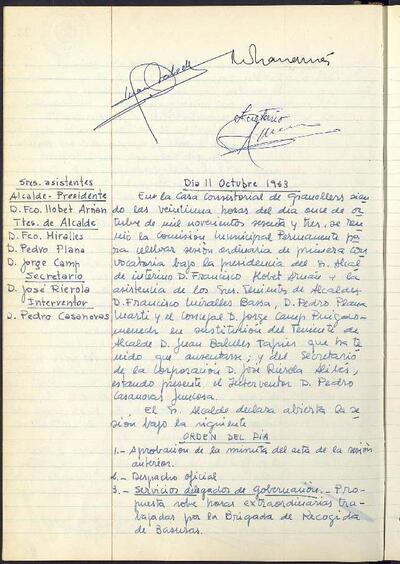 Dia 11 Octubre 1963
Sres. asistentes
Alcalde-Presidente
D. Fco. Llobet Arnan
Ttes. de Alcalde
D. Fco. Miralles
D. Pedro Plana
D. Jorge Camp
Secretario
D. José Rierola
Interventor
D. Pedro Casanovas
En la Casa Consistorial de Granollers sien
do las veintiuna horas del día once de oc
tubre de mil novecientos sesenta y tres, se reu
nió la Comisión Municipal Permanente pa
ra celebrar sesión ordinaria de primera con
vocatoria bajo la presidencia del Sr. Alcal
de interino D. Francisco Llobet Arnán y la
asistencia de los Sres. Tenientes de Alcalde,
D. Francisco Miralles Bassa, D. Pedro Plana
Martí y el concejal D. Jorge Camp
en sustitución del Teniente de
Alcalde D. Juan que ha te
nido que ausentarse; y del Secretario
de la Corporación D. José Rierola
estando presente el Interventor D. Pedro
Casanovas
El Sr. Alcalde declara abierta la se
sión bajo la siguiente
ORDEN DEL DIA
1.- Aprobación de la minuta del acta de la sesión
anterior.
2.- Despacho oficial
3.- Servicios delegados de gobernación.- Pro-
puesta sobre horas extraordinarias tra-
bajadas por la Brigada de Recogida
de Basuras.